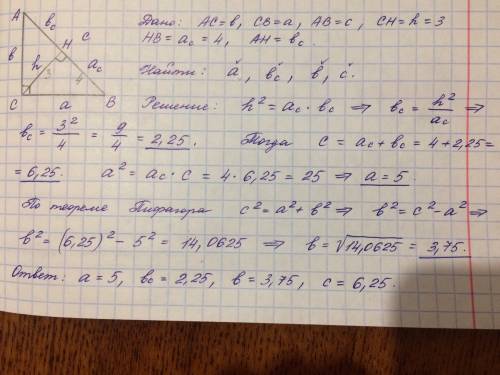 A
в_c
Дано: AC=в, CB=a, AB=c, CH=h=3
H
c
HB=a_c=4, AH=в_c.
в
h
3
a_c
4
Найти: a, в_c, в, c.
C
a
B
Решение: h²=a_c·в_c ⇒ в_c = h²/a_c ⇒
в_c = 3²/4 = 9/4 = 2,25. Тогда c = a_c + в_c = 4+2,25=
= 6,25. a² = a_c·c = 4·6,25 = 25 ⇒ a=5.
По теореме Пифагора c²=a²+в² ⇒ в²=c²-a² ⇒
в² = (6,25)² - 5² = 14,0625 ⇒ в=√14,0625 = 3,75.
Ответ: a=5, в_c = 2,25, в = 3,75, c = 6,25.